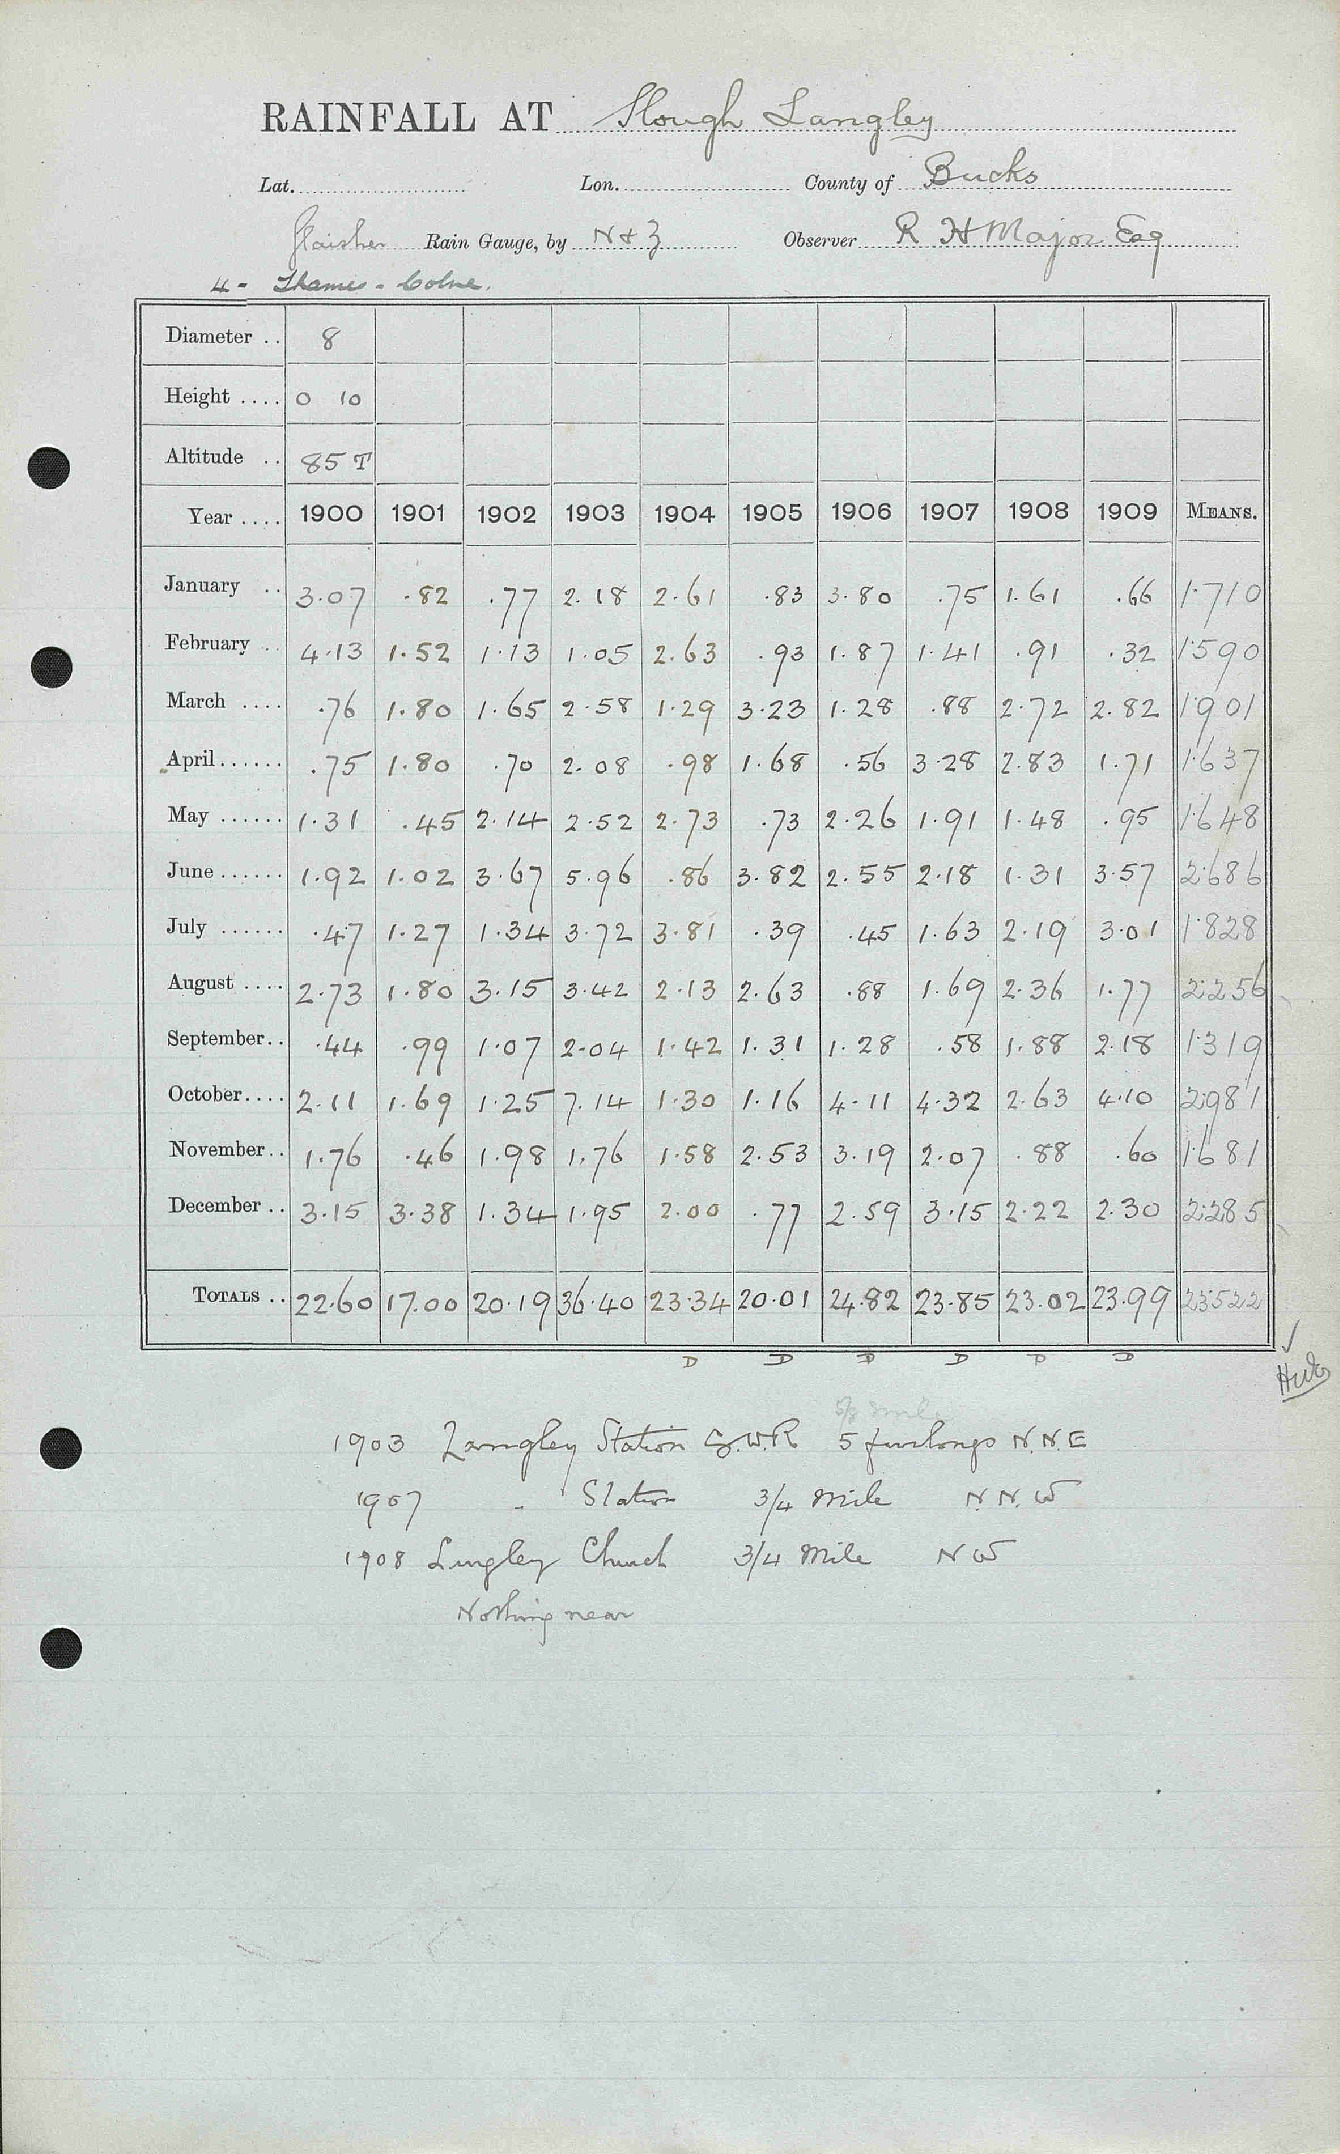 RAINFALL AT Slough Langley
Lat. Lon. County of Bucks
Glaisher Rain Gauge, by N & Z Observer R H Major Esq
4 - Thames - Colne.
Diameter .. 8
Height .... 0 10
Altitude .. 85 T
Year .... 1900 1901 1902 1903 1904 1905 1906 1907 1908 1909 MEANS.
January .. 3.07 .82 .77 2.18 2.61 .83 3.80 .75 1.61 .66 1.710
February .. 4.13 1.52 1.13 1.05 2.63 .93 1.87 1.41 .91 .32 1590
March .... .76 1.80 1.65 2.58 1.29 3.23 1.28 .88 2.72 2.82 1.901
April ...... .75 1.80 .70 2.08 .98 1.68 .56 3.28 2.83 1.71 1.637
May ...... 1.31 .45 2.14 2.52 2.73 .73 2.26 1.91 1.48 .95 1.648
June ...... 1.92 1.02 3.67 5.96 .86 3.82 2.55 2.18 1.31 3.57 2.686
July ...... .47 1.27 1.34 3.72 3.81 .39 .45 1.63 2.19 3.01 1.828
August .... 2.73 1.80 3.15 3.42 2.13 2.63 .88 1.69 2.36 1.77 2.256
September .. .44 .99 1.07 2.04 1.42 1.31 1.28 .58 1.88 2.18 1.319
October .... 2.11 1.69 1.25 7.14 1.30 1.16 4.11 4.32 2.63 4.10 2.981
November .. 1.76 .46 1.98 1.76 1.58 2.53 3.19 2.07 .88 .60 1.681
December .. 3.15 3.38 1.34 1.95 2.00 .77 2.59 3.15 2.22 2.30 2.285
TOTALS .. 22.60 17.00 20.19 36.40 23.34 20.01 24.82 23.85 23.02 23.99 23.522
D D D D D D
1903 Langley Station G.W.R 5 furlongs N.N.E
1907 " Station 3/4 Mile N.N.W
1908 Langley Church 3/4 Mile NW
Nothing near